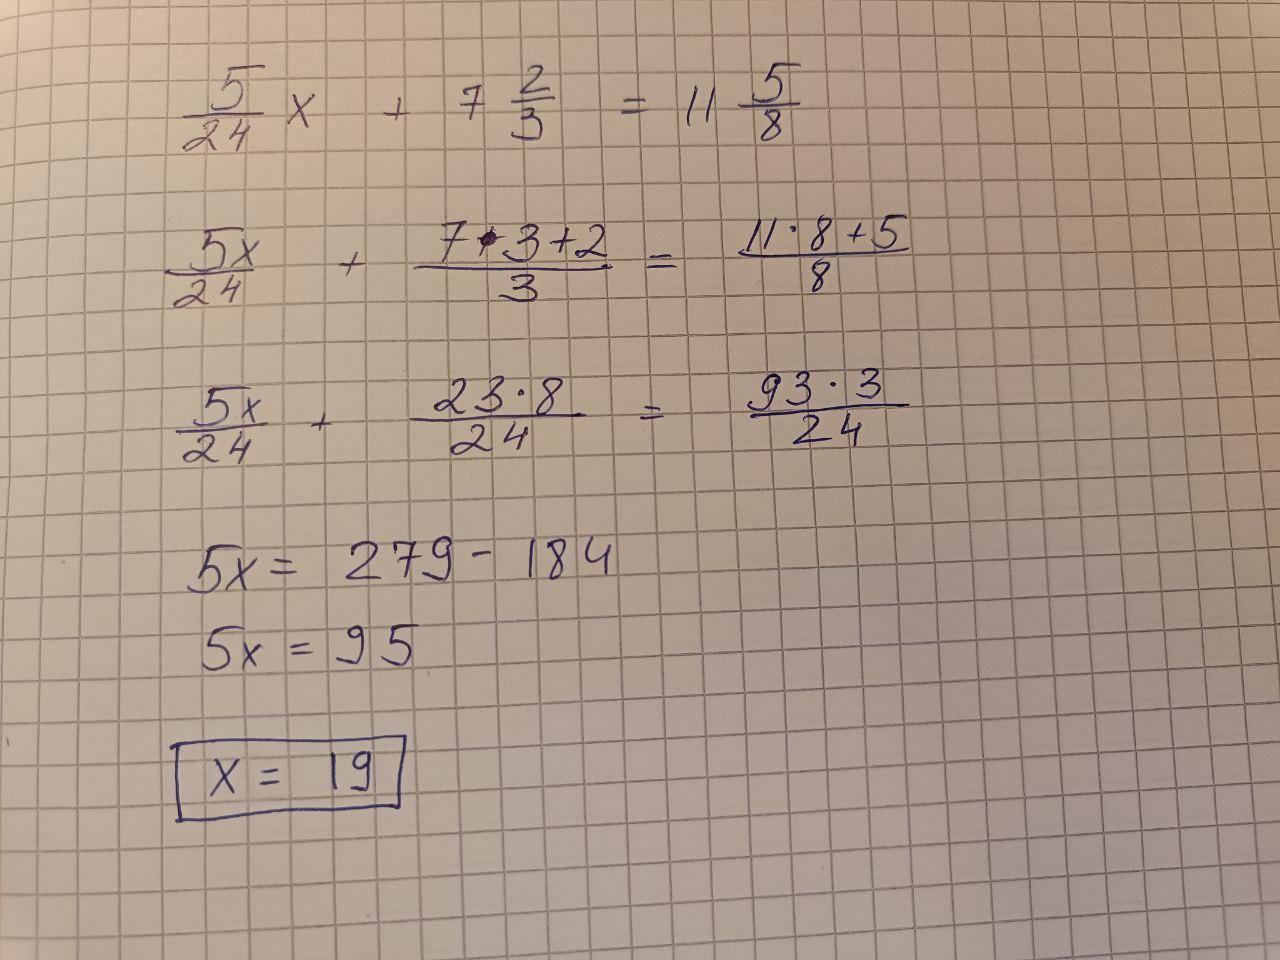 5/24 x + 7 2/3 = 11 5/8
5x/24 + (7·3+2)/3 = (11·8+5)/8
5x/24 + (23·8)/24 = (93·3)/24
5x = 279 - 184
5x = 95
x = 19